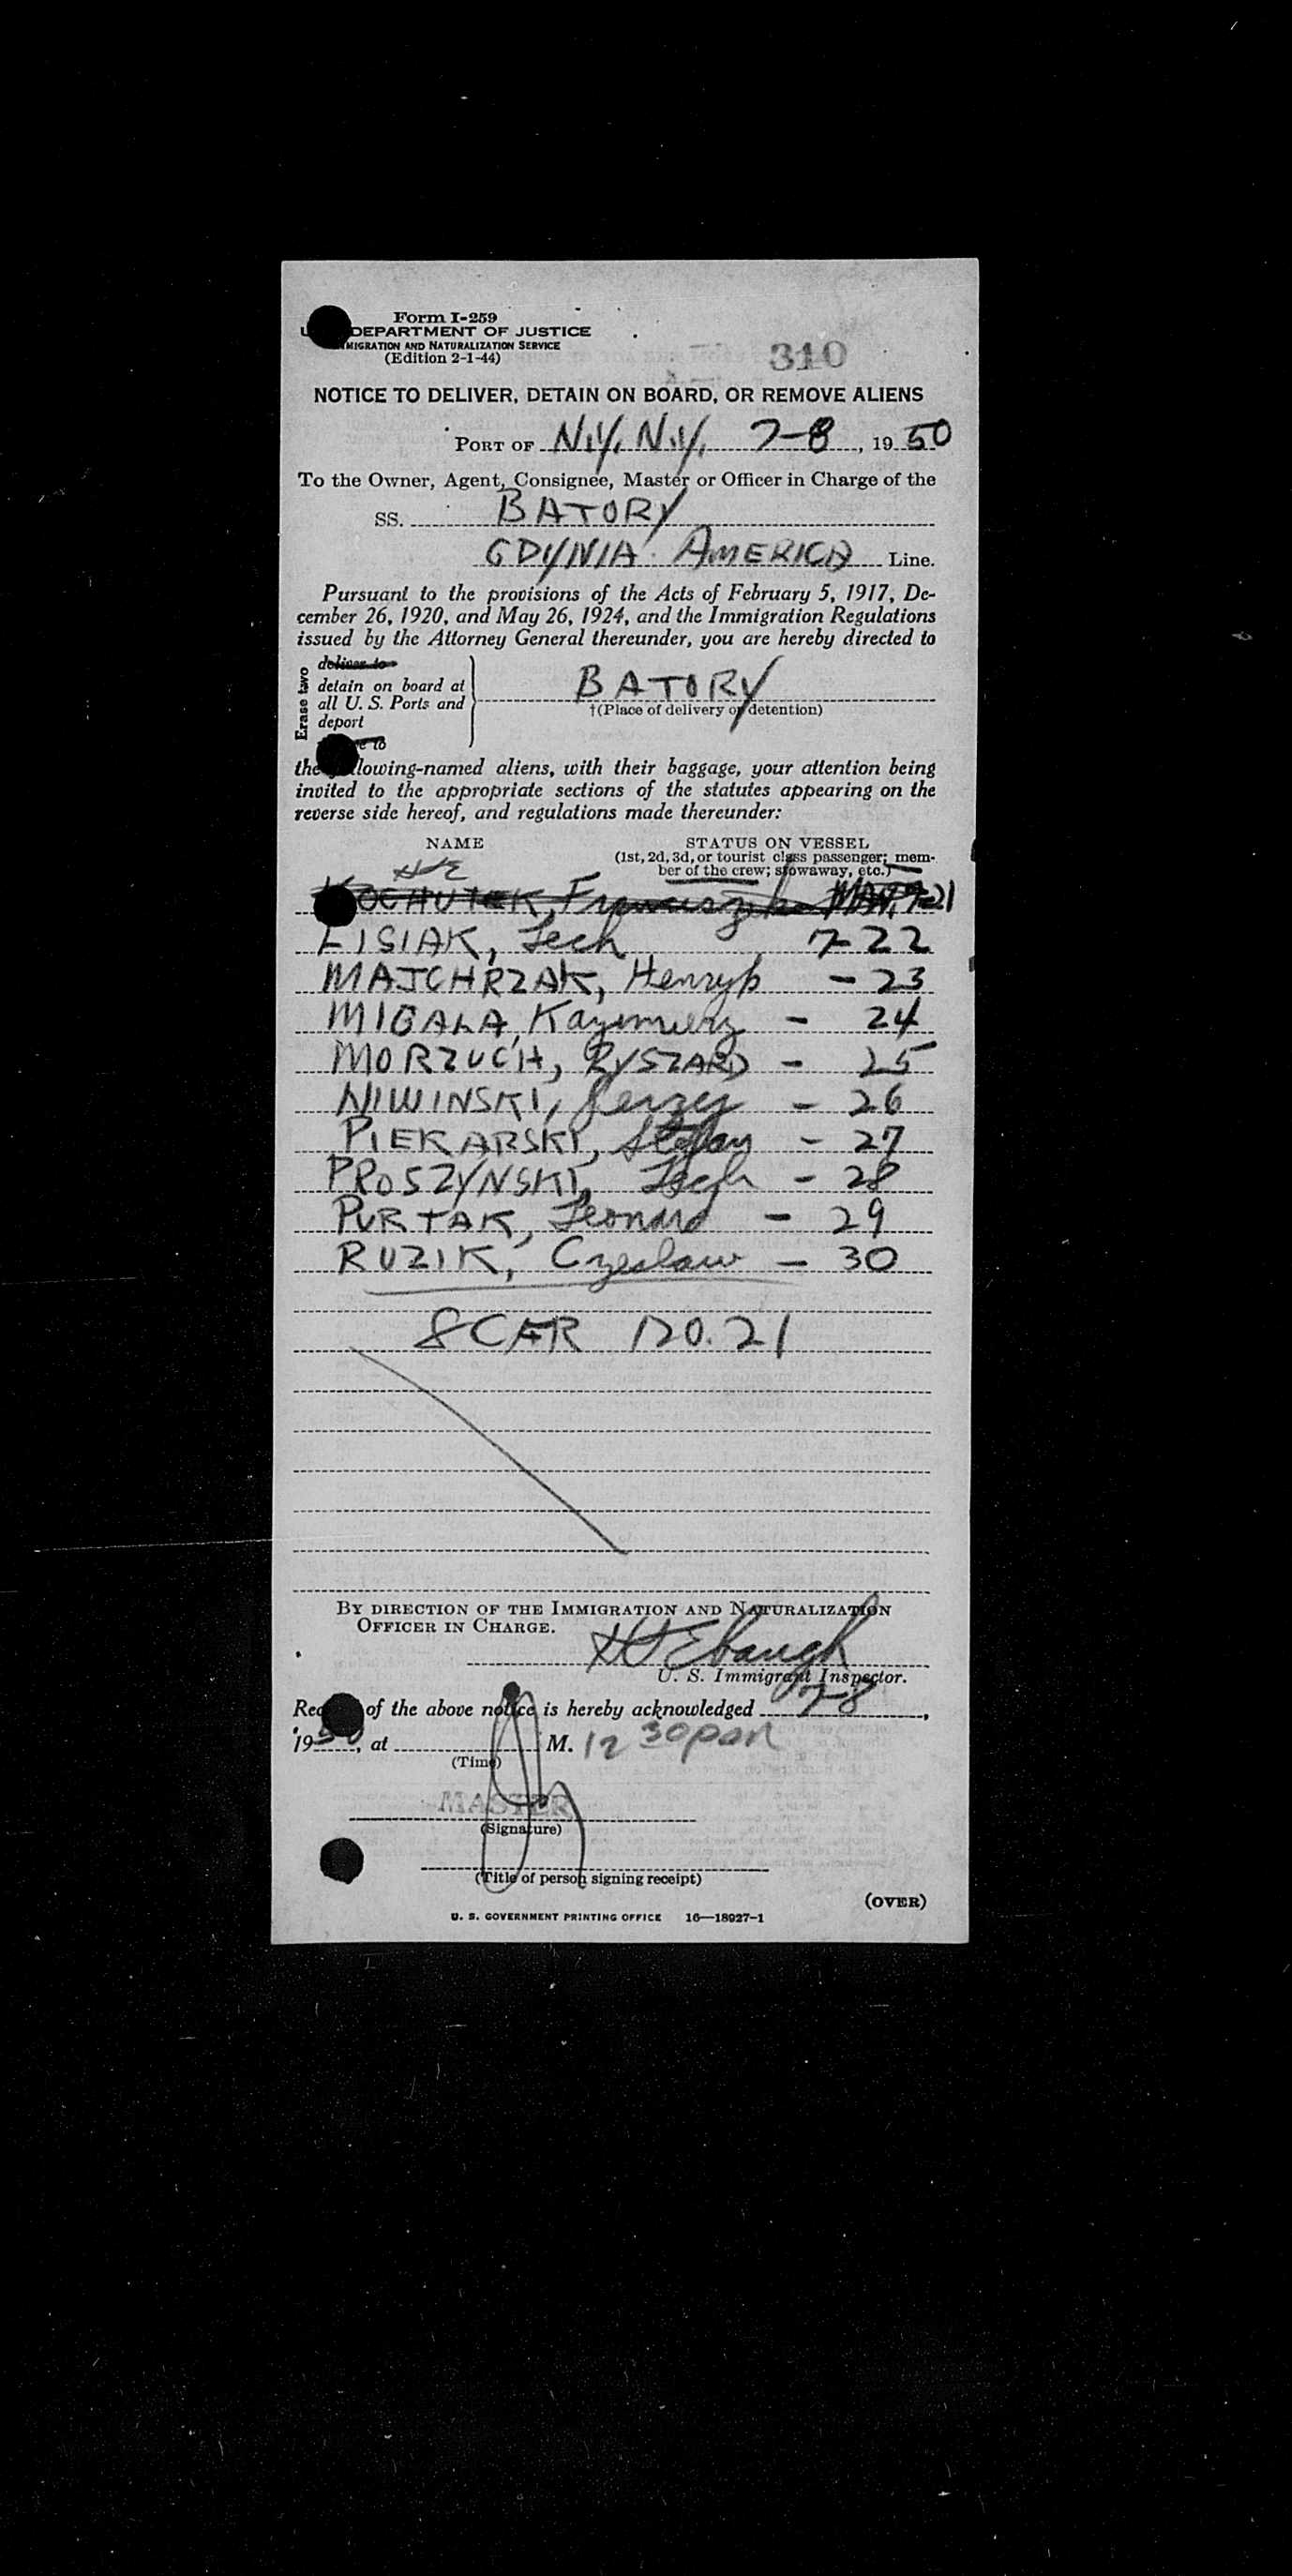 Form I-259
DEPARTMENT OF JUSTICE
MIGRATION AND NATURALIZATION SERVICE
(Edition 2-1-44)
310
NOTICE TO DELIVER, DETAIN ON BOARD, OR REMOVE ALIENS
PORT OF N.Y. N.Y. 7-8, 1950
To the Owner, Agent, Consignee, Master or Officer in Charge of the
SS. BATORY
GDYNIA AMERICA Line.
Pursuant to the provisions of the Acts of February 5, 1917, De-
cember 26, 1920, and May 26, 1924, and the Immigration Regulations
issued by the Attorney General thereunder, you are hereby directed to
Erase two
deliver to
detain on board at
all U. S. Ports and
deport
to
BATORY
†(Place of delivery or detention)
the lowing-named aliens, with their baggage, your attention being
invited to the appropriate sections of the statutes appearing on the
reverse side hereof, and regulations made thereunder:
NAME STATUS ON VESSEL
(1st, 2d, 3d, or tourist class passenger; mem-
ber of the crew; stowaway, etc.)
HJE
21
LISIAK, Lech 7-22
MAJCHRZAK, Henryk - 23
MIGALA, Kazimierz - 24
MORZUCH, RYSZARD - 25
NIWINSKI, Jerzy - 26
PIEKARSKI, Stefan - 27
PROSZYNSKI, Lech - 28
PURTAK, Leonard - 29
RUZIK, Czeslaw - 30
8 CFR 120.21
BY DIRECTION OF THE IMMIGRATION AND NATURALIZATION
OFFICER IN CHARGE.
HJEbaugh
U. S. Immigrant Inspector.
of the above notice is hereby acknowledged 7-8,
1950, at M. 12 30pm
(Time)
MASTER
(Signature)
(Title of person signing receipt)
(OVER)
U. S. GOVERNMENT PRINTING OFFICE 16—18927-1